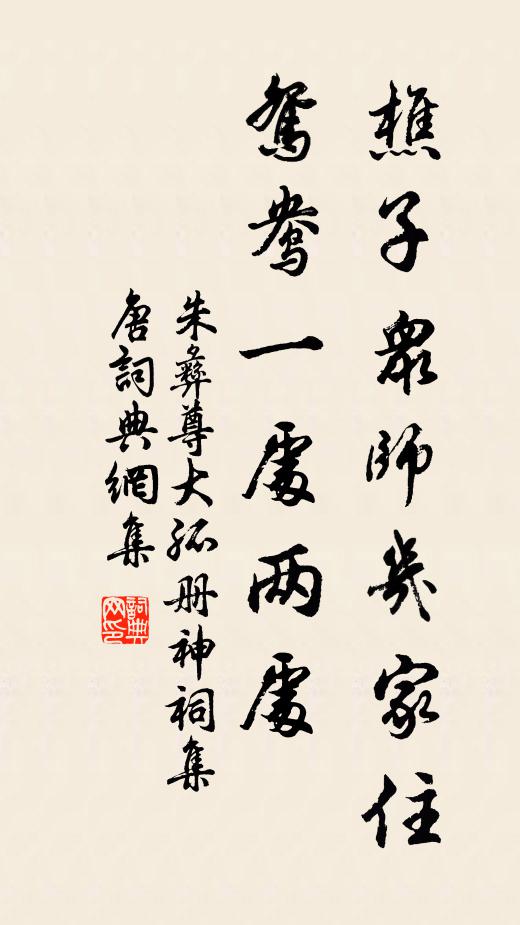 樵子眾師幾家住
鴛鴦一處両處
朱彝尊大孤册神祠集
唐詞典網集
詞典
网印